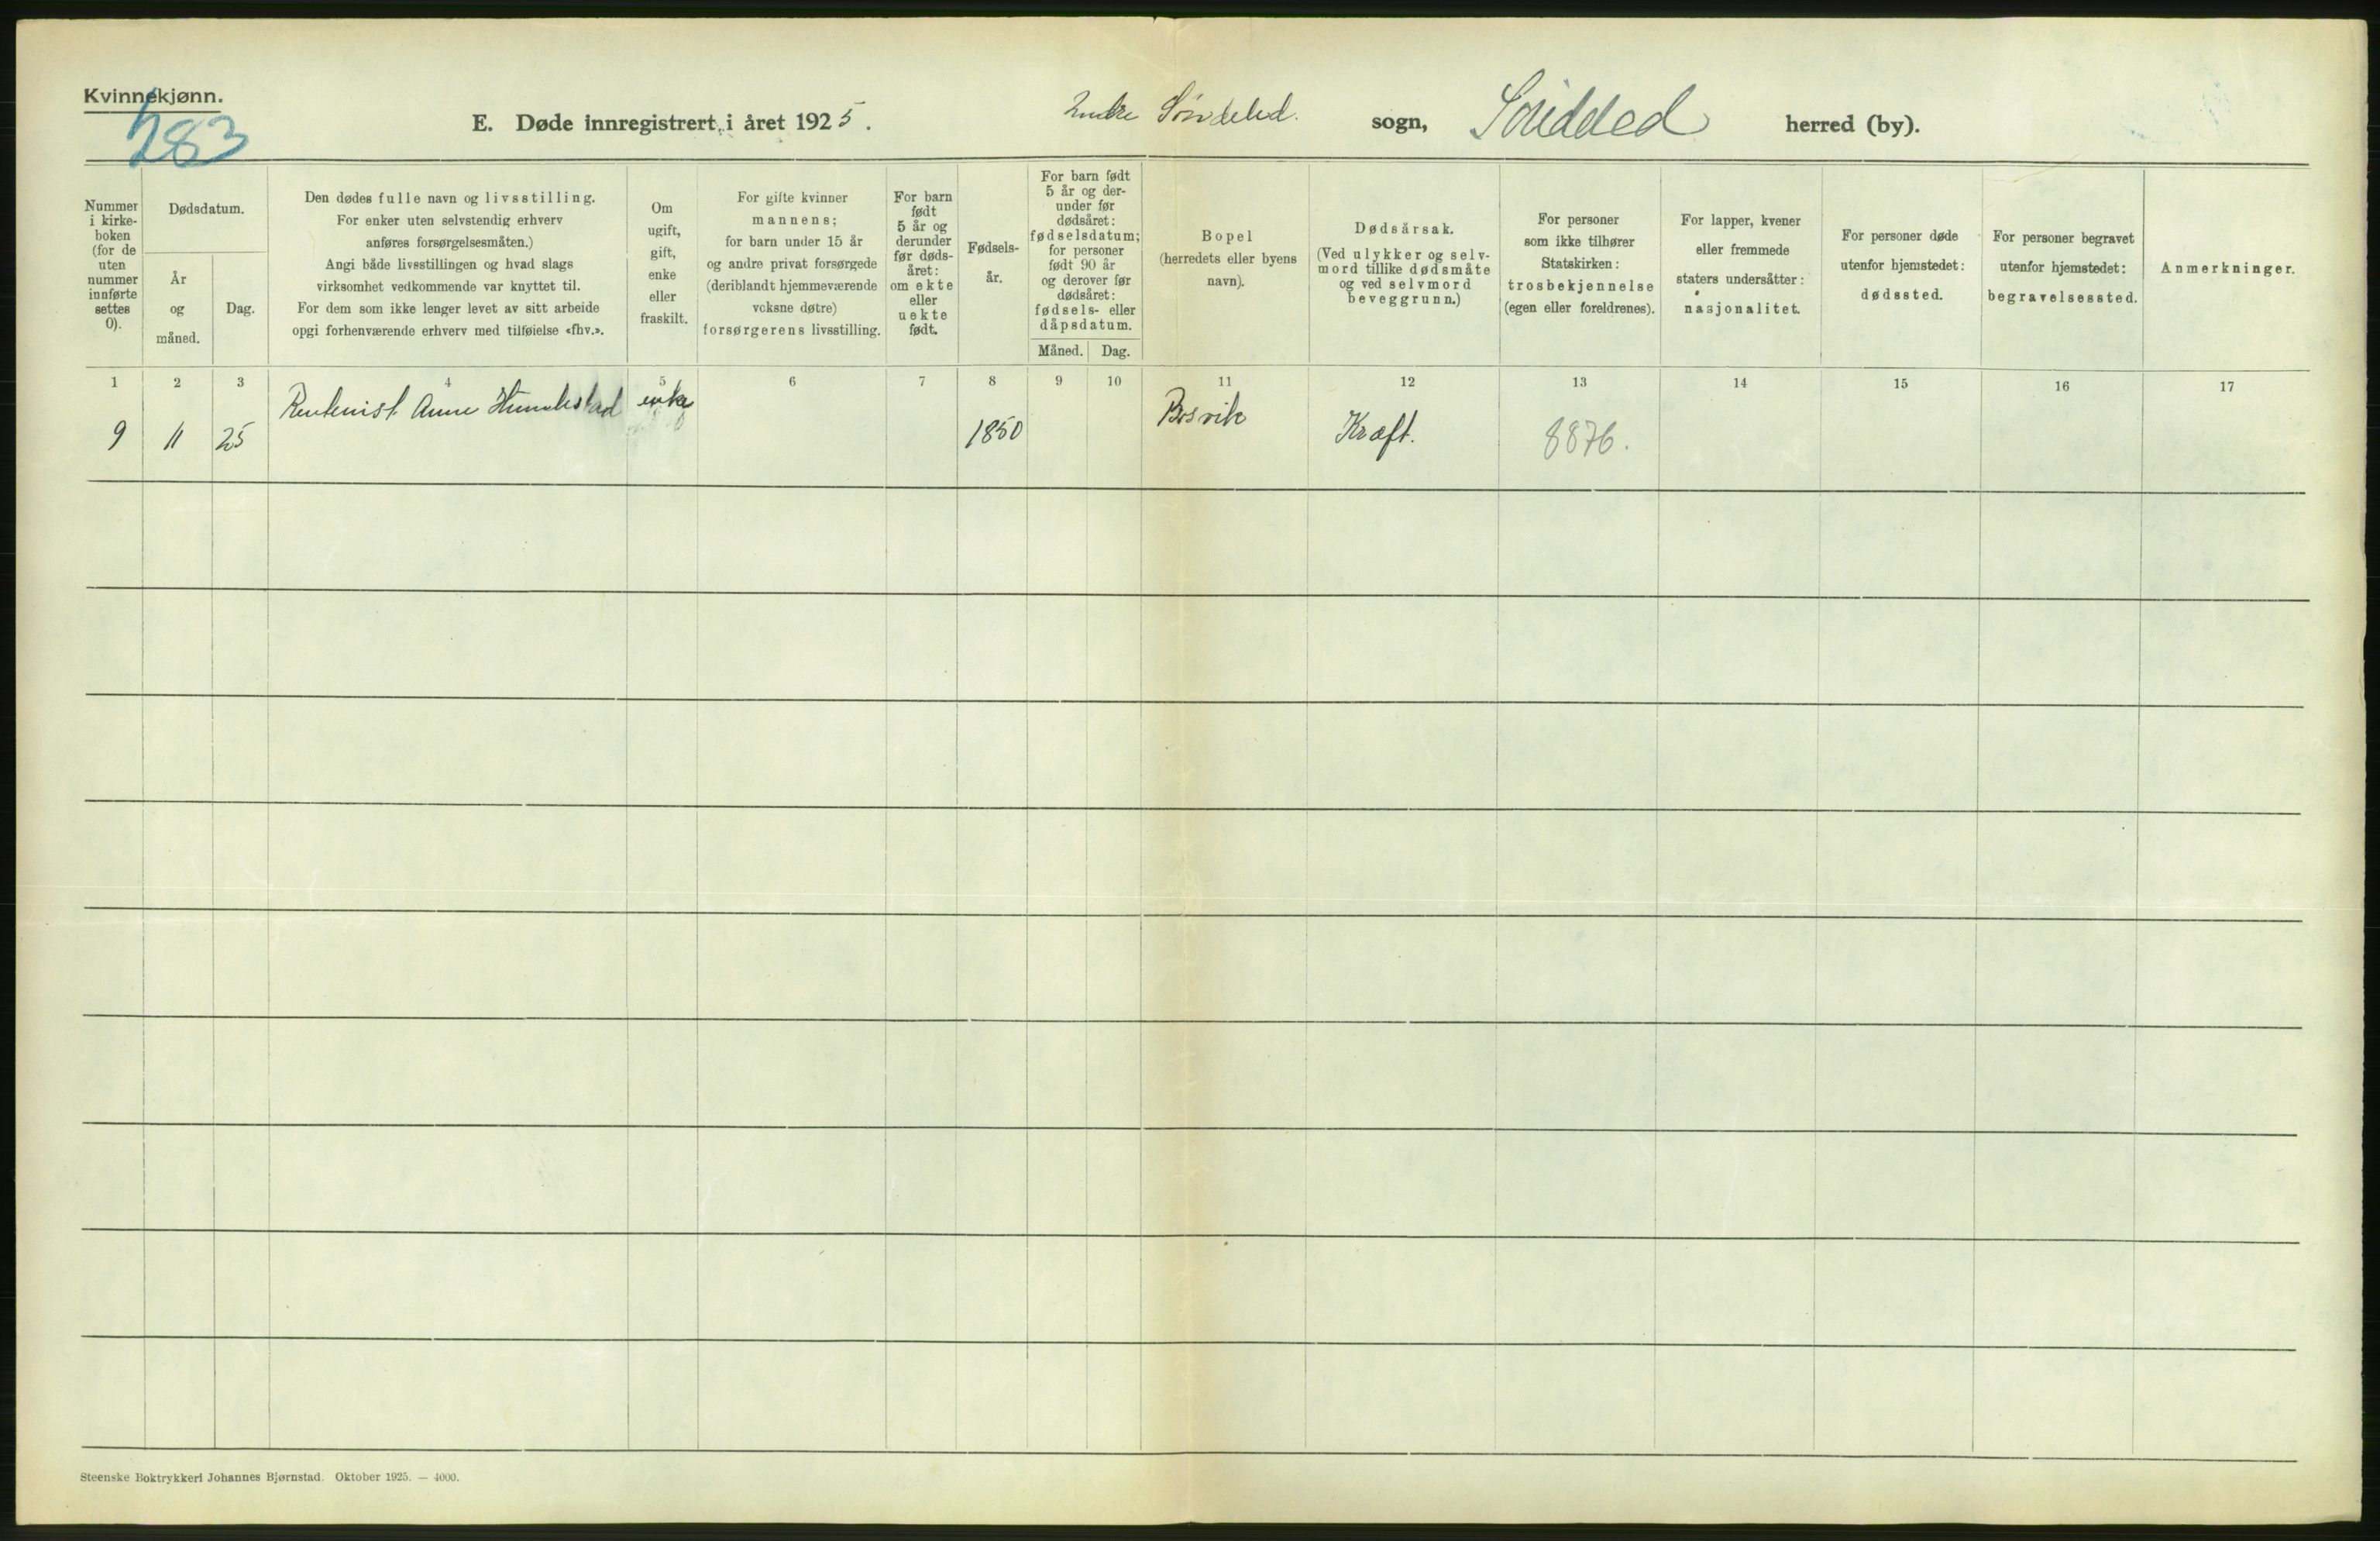 Kvinnekjønn.
283
E. Døde innregistrert i året 1925. Indre Søndeled. sogn, Søndeled herred (by).
Nummer i kirkeboken (for de uten nummer innførte settes 0).
Dødsdatum.
År og måned.
Dag.
Den dødes fulle navn og livsstilling.
For enker uten selvstendig erhverv
anføres forsørgelsesmåten.)
Angi både livsstillingen og hvad slags
virksomhet vedkommende var knyttet til.
For dem som ikke lenger levet av sitt arbeide
opgi forhenværende erhverv med tilføielse «fhv.».
Om
ugift,
gift,
enke
eller
fraskilt.
For gifte kvinner
mannens;
for barn under 15 år
og andre privat forsørgede
(deriblandt hjemmeværende
voksne døtre)
forsørgerens livsstilling.
For barn
født
5 år og
derunder
før døds-
året:
om ekte
eller
uekte
født.
Fødsels-
år.
For barn født
5 år og der-
under før
dødsåret:
fødselsdatum;
for personer
født 90 år
og derover før
dødsåret:
fødsels- eller
dåpsdatum.
Måned. Dag.
Bopel
(herredets eller byens
navn).
Dødsårsak.
(Ved ulykker og selv-
mord tillike dødsmåte
og ved selvmord
beveggrunn.)
For personer
som ikke tilhører
Statskirken:
trosbekjennelse
(egen eller foreldrenes).
For lapper, kvener
eller fremmede
staters undersåtter:
nasjonalitet.
For personer døde
utenfor hjemstedet:
dødssted.
For personer begravet
utenfor hjemstedet:
begravelsessted.
Anmerkninger.
1 2 3 4 5 6 7 8 9 10 11 12 13 14 15 16 17
Rentenist Anne Humlestad enke Bosvik
9 11 25 1850 Kræft. 8876.
Steenske Boktrykkeri Johannes Bjørnstad. Oktober 1925. — 4000.